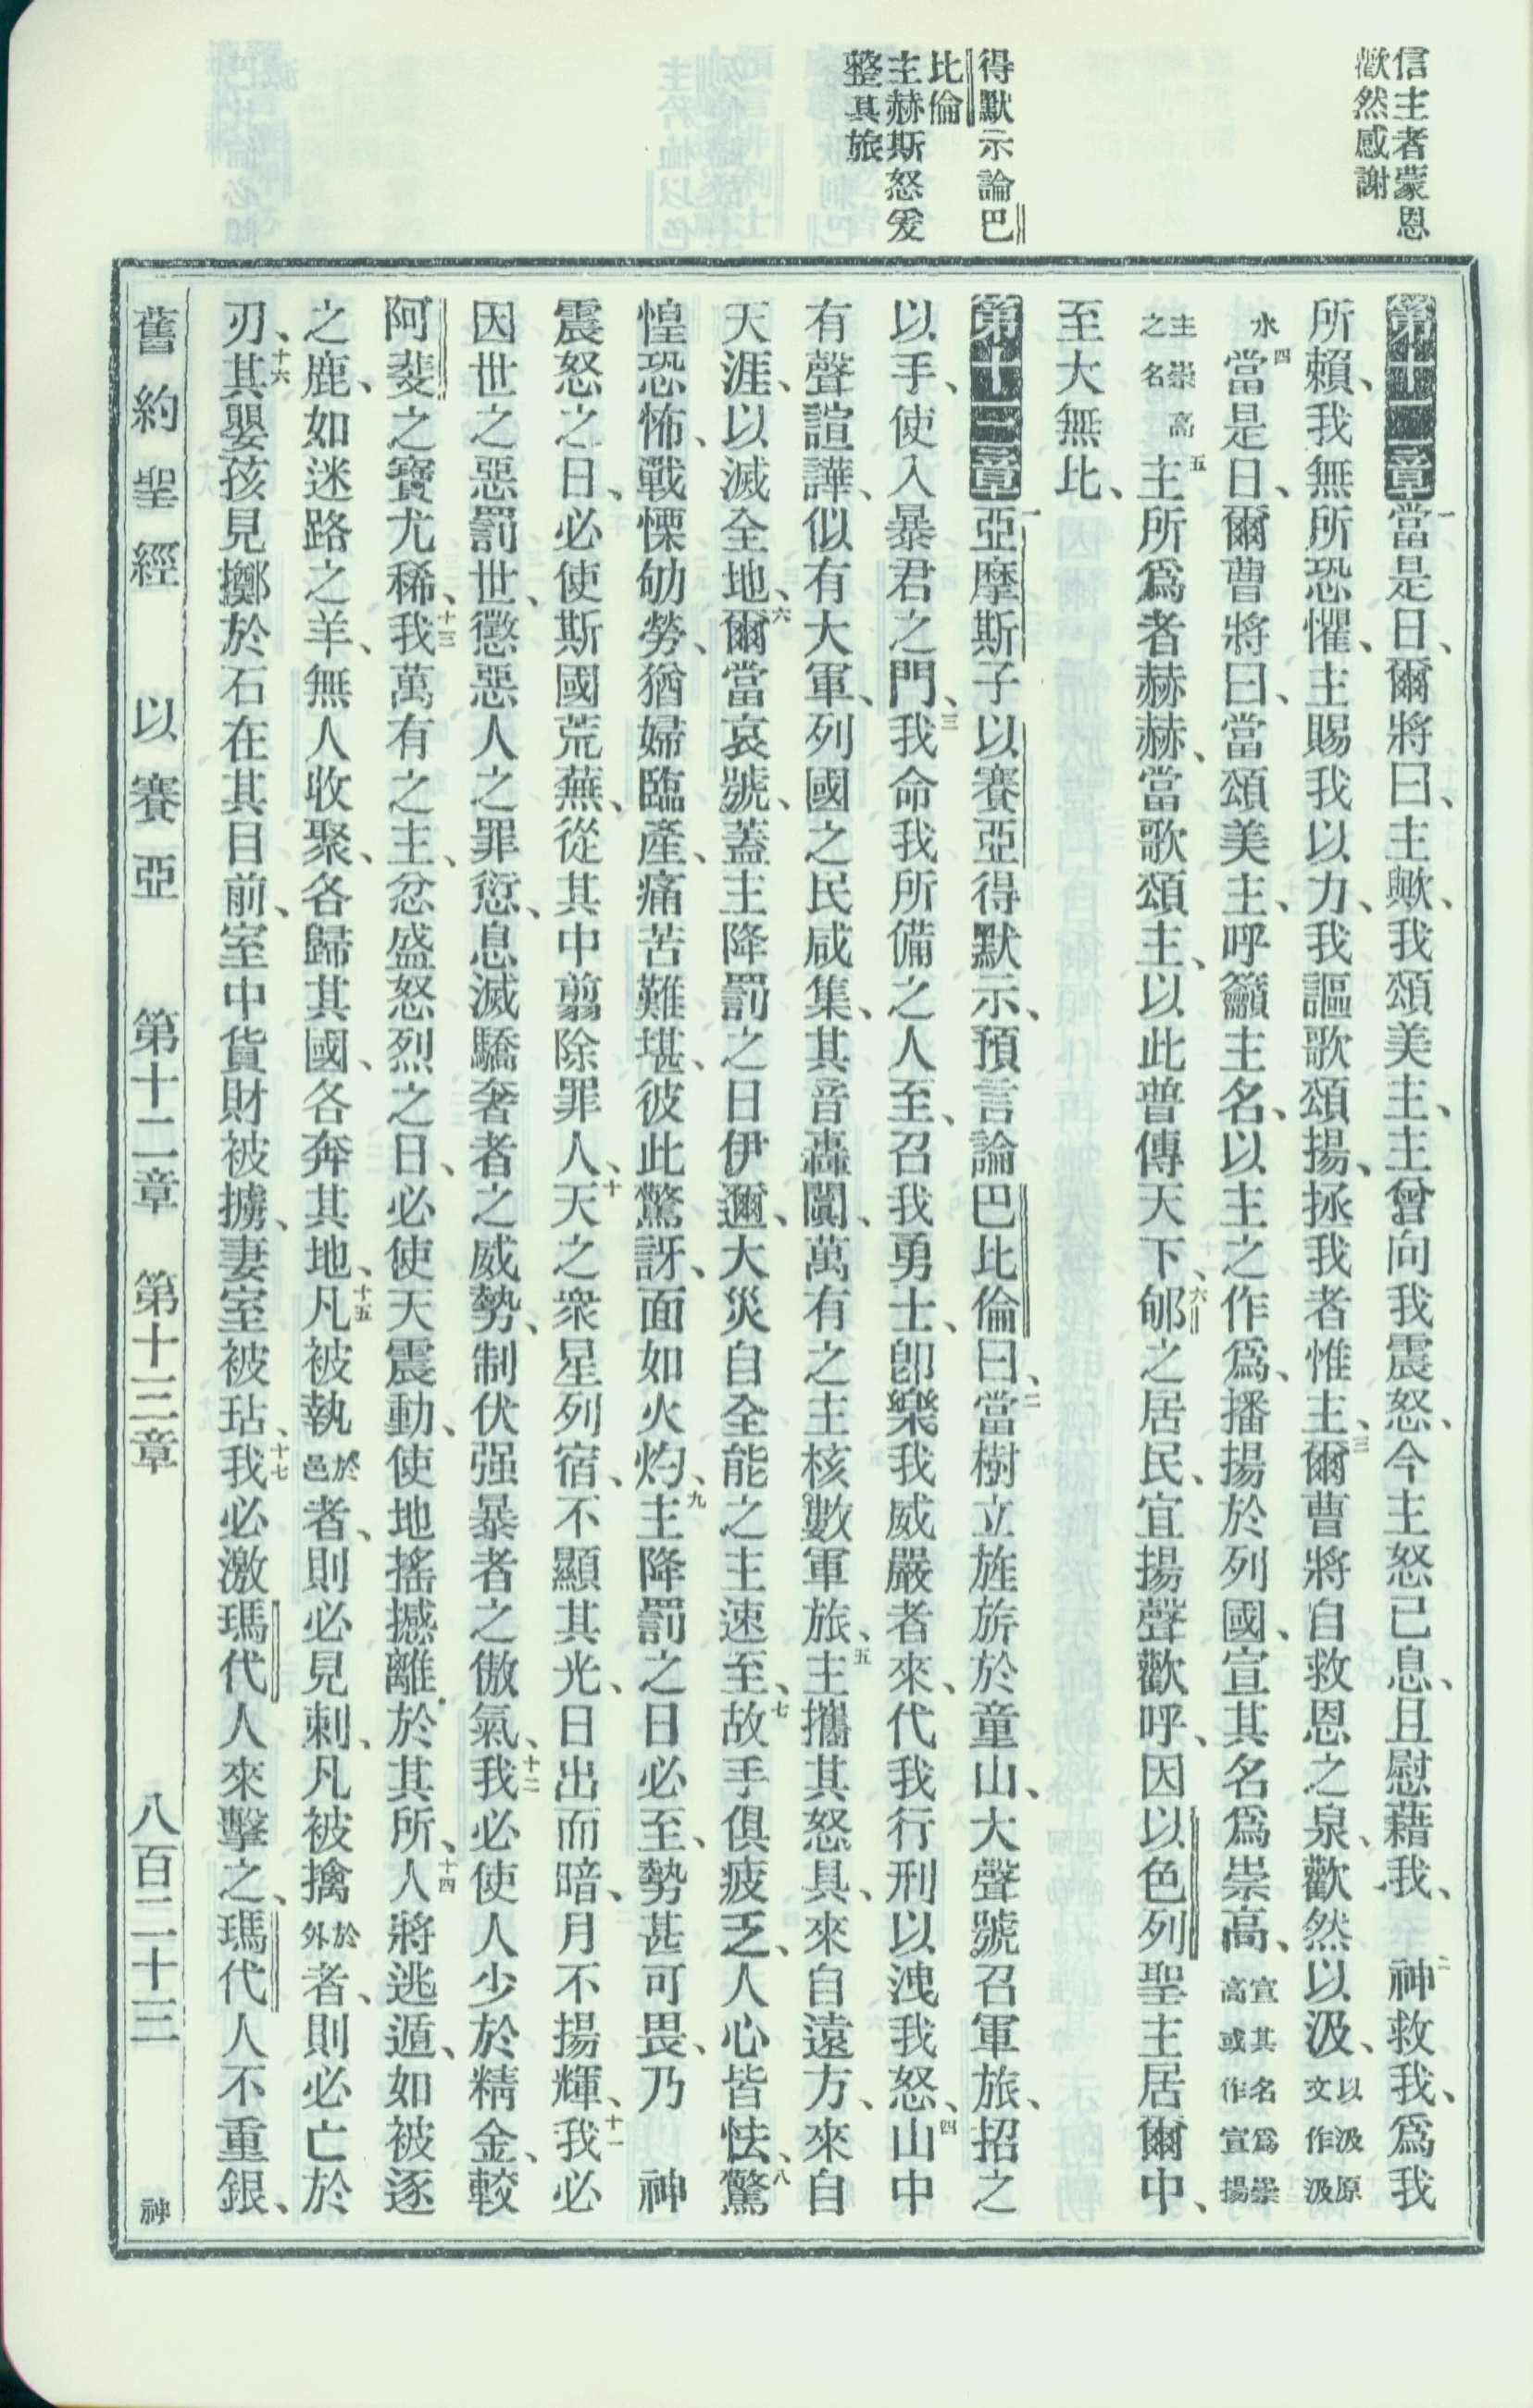 信主者蒙恩
歡然感謝
得默示論巴
比倫
主赫斯怒爰
整其旅
第十二章一當是日、爾將曰、主歟、我頌美主、主曾向我震怒、今主怒已息、且慰藉我、二神救我、爲我
所賴、我無所恐懼、主賜我以力、我謳歌頌揚、拯我者惟主、三爾曹將自救恩之泉、歡然以汲、以汲原文作汲
水四當是日、爾曹將曰、當頌美主、呼籲主名、以主之作爲、播揚於列國、宣其名爲崇高、宣其名爲崇高或作宣揚
主崇高之名五主所爲者赫赫、當歌頌主、以此普傳天下、六郇之居民、宜揚聲歡呼、因以色列聖主居爾中、
至大無比、
第十三章一亞摩斯子以賽亞得默示、預言論巴比倫曰、二當樹立旌旂於童山、大聲號召軍旅、招之
以手、使入暴君之門、三我命我所備之人至、召我勇士、卽樂我威嚴者來、代我行刑以洩我怒、四山中
有聲諠譁、似有大軍、列國之民咸集、其音轟闐、萬有之主核數軍旅、五主攜其怒具、來自遠方、來自
天涯、以滅全地、六爾當哀號、蓋主降罰之日伊邇、大災自全能之主速至、七故手俱疲乏、人心皆怯、八驚
惶恐怖、戰慄劬勞、猶婦臨產、痛苦難堪、彼此驚訝、面如火灼、九主降罰之日必至、勢甚可畏、乃 神
震怒之日、必使斯國荒蕪、從其中翦除罪人、十天之衆星列宿、不顯其光、日出而暗、月不揚輝、十一我必
因世之惡罰世、懲惡人之罪愆、息滅驕奢者之威勢、制伏强暴者之傲氣、十二我必使人少於精金、較
阿斐之寶尤稀、十三我萬有之主、忿盛怒烈之日、必使天震動、使地搖撼離於其所、十四人將逃遁、如被逐
之鹿、如迷路之羊、無人收聚、各歸其國、各奔其地、十五凡被執於邑者、則必見刺、凡被擒於外者、則必亡於
刃、十六其嬰孩見擲於石在其目前、室中貨財被擄、妻室被玷、十七我必激瑪代人來擊之、瑪代人不重銀、
舊約聖經 以賽亞 第十二章 第十三章 八百二十三 神